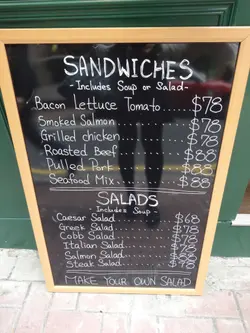 SANDWICHES
-Includes Soup or Salad-
Bacon Lettuce Tomato.....$78
Smoked Salmon..........$78
Grilled chicken..........$78
Roasted Beef..........$88
Pulled Pork..........$88
Seafood Mix..........$88
SALADS
Includes Soup
Caesar Salad..........$68
Greek Salad..........$78
Cobb Salad..........$78
Italian Salad..........$78
Salmon Salad..........$88
Steak Salad..........
MAKE YOUR OWN SALAD